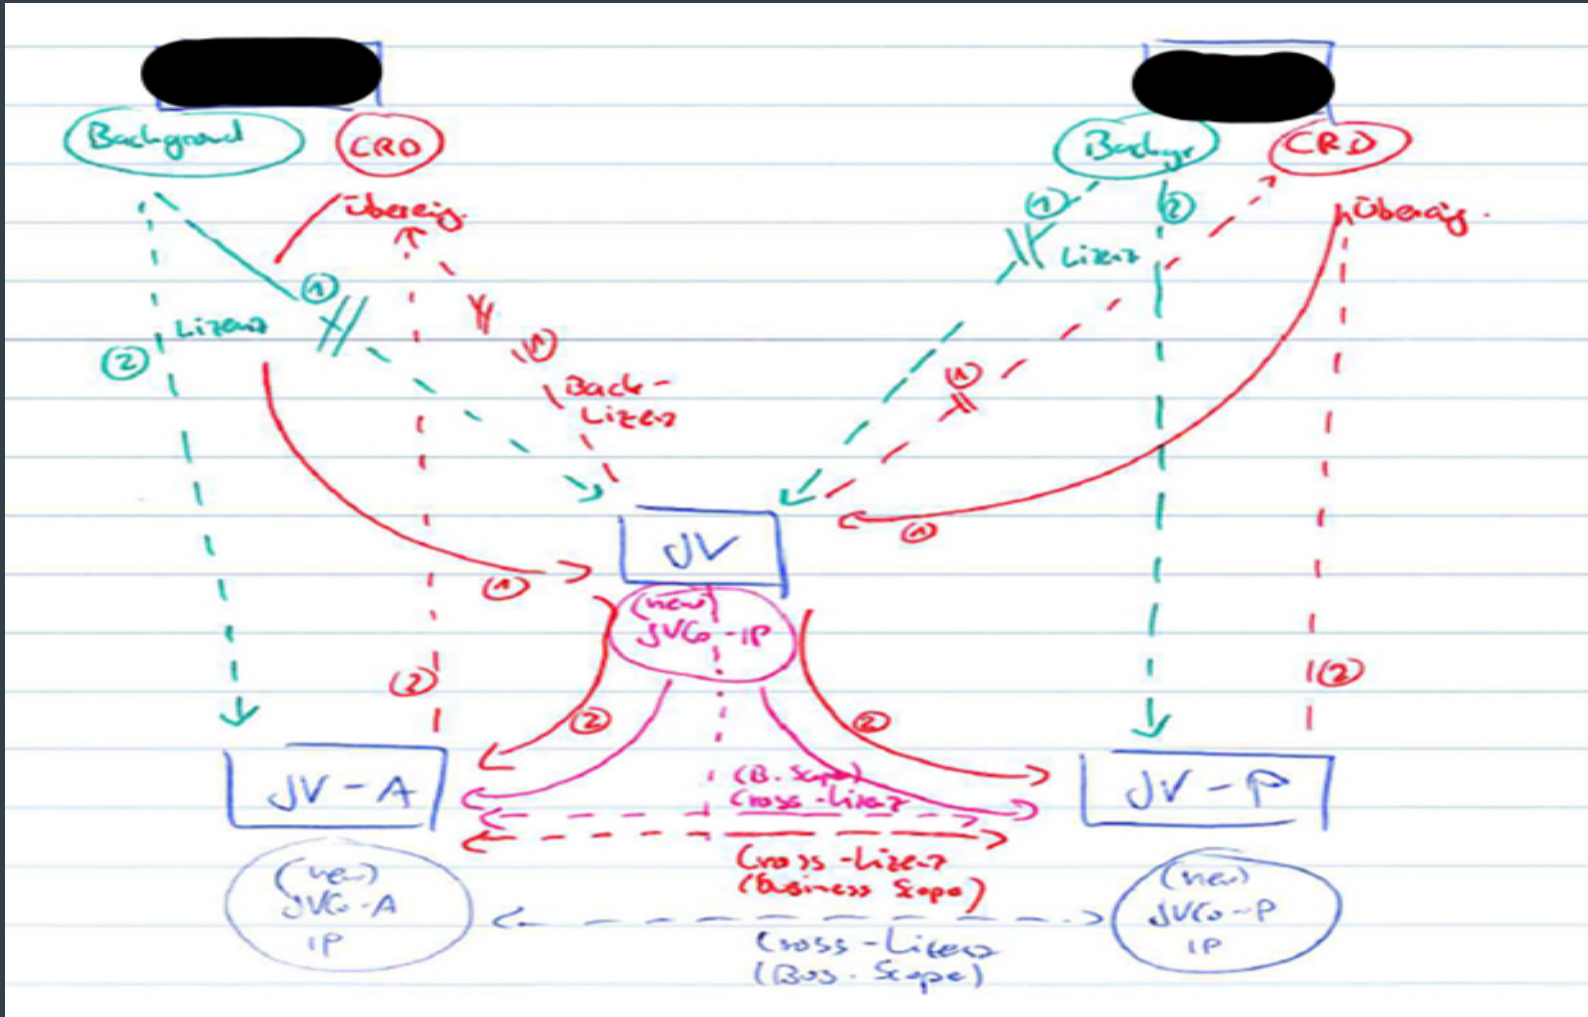 Background
CRD
Backgr
CRD
Übereig.
①
②
Lizenz
Übereig.
①
Lizenz
②
①
Back-
Lizenz
①
JV
①
①
(new)
JVCo-IP
②
②
②
②
JV-A
(B. Scope)
Cross-Lizenz
JV-P
Cross-Lizenz
(Business Scope)
(new)
JVCo-A
IP
(new)
JVCo-P
IP
Cross-Lizenz
(Bus. Scope)